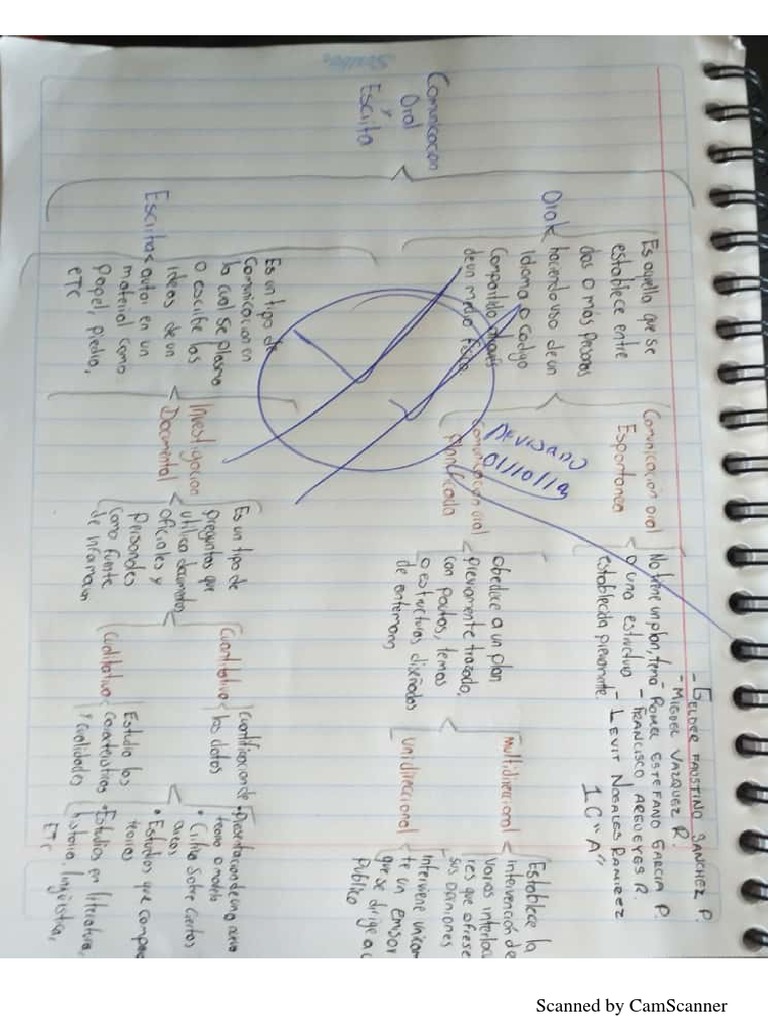 - GELDER FAUSTINO SANCHEZ P.
- MIGUEL VAZQUEZ R.
- ROMEL ESTEFANO GARCIA P.
- FRANCISCO ARGUEYES R.
- LEVIT NOGALES RAMIREZ
1C "A"
Comunicacion
Oral
y
Escrita
Oral
Es aquella que se
establece entre
dos o más personas
haciendo uso de un
Idioma o codigo
Compartido através
de un medio físico
Comunicación oral
Espontanea
No tiene un plan, tema
o una estructura
establecida previamente
Comunicación oral
Planificada
REVISADO
01/10/19
obedece a un plan
previamente trazado,
con pautas, temas
o estructuras diseñadas
de antemano
Multidireccional
Establece la
intervención de
varios interlocu
res que ofrese
sus opiniones
Unidireccional
Interviene unicam
te un emisor
que se dirige a u
Publico
Escrita
Es un tipo de
Comunicacion en
la cual se plasma
o escribe las
ideas de un
autor en un
material como
papel, piedra,
etc
Investigacion
Documental
Es un tipo de
preguntas que
utiliza documentos
oficiales y
personales
como fuente
de
Cuantitativa
Cuantificacion de
los datos
• Presentacion de una nueva
teoria o modelo
• Critica sobre ciertos
Cualitativa
Estudia las
Caracteristicas
y cualidades
• Estudios que compara
teorias
• Estudios en literatura,
historia, lingüistica,
ETC
Scanned by CamScanner